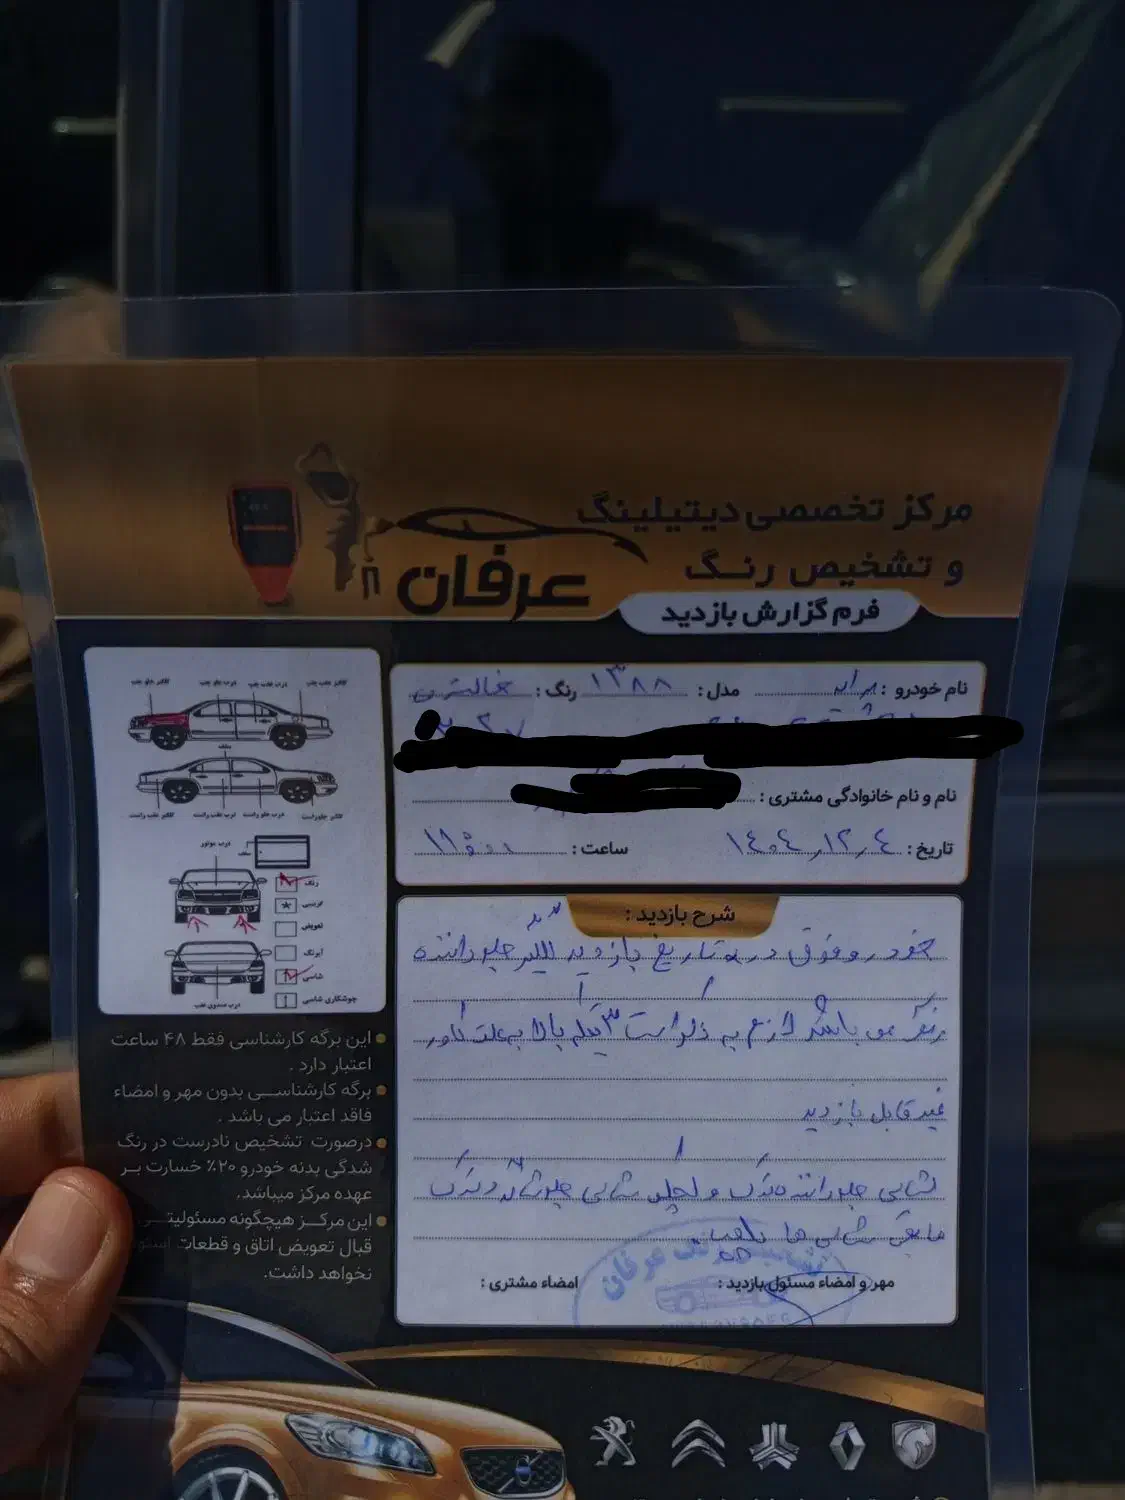 مرکز تخصصی دیتیلینگ
و تشخیص رنگ
عرفان
فرم گزارش بازدید
نام خودرو : پراید مدل : ۱۳۸۸ رنگ :
نام و نام خانوادگی مشتری :
تاریخ : ۱۴۰۴,۱۲,۴ ساعت : ۱۱:۰۰
شرح بازدید :
خودرو فوق در تاریخ بازدید گلگیر جلو راننده
رنگ می باشد لازم به ذکر است بالا به علت کاور
غیر قابل بازدید
شاسی جلو راننده و شاسی جلو شاگرد
مابقی شاسی ها
مهر و امضاء مسئول بازدید :
امضاء مشتری :
گلگیر عقب چپ
درب عقب چپ
درب جلو چپ
گلگیر جلو چپ
سقف
گلگیر عقب راست
درب عقب راست
درب جلو راست
گلگیر جلو راست
درب موتور
سقف
رنگ
تعویض
آبرنگ
شاسی
جوشکاری شاسی
درب صندوق عقب
این برگه کارشناسی فقط ۴۸ ساعت
اعتبار دارد .
برگه کارشناسی بدون مهر و امضاء
فاقد اعتبار می باشد .
درصورت تشخیص نادرست در رنگ
شدگی بدنه خودرو ۲۰٪ خسارت بر
عهده مرکز میباشد.
این مرکز هیچگونه مسئولیتی
قبال تعویض اتاق و قطعات
نخواهد داشت.